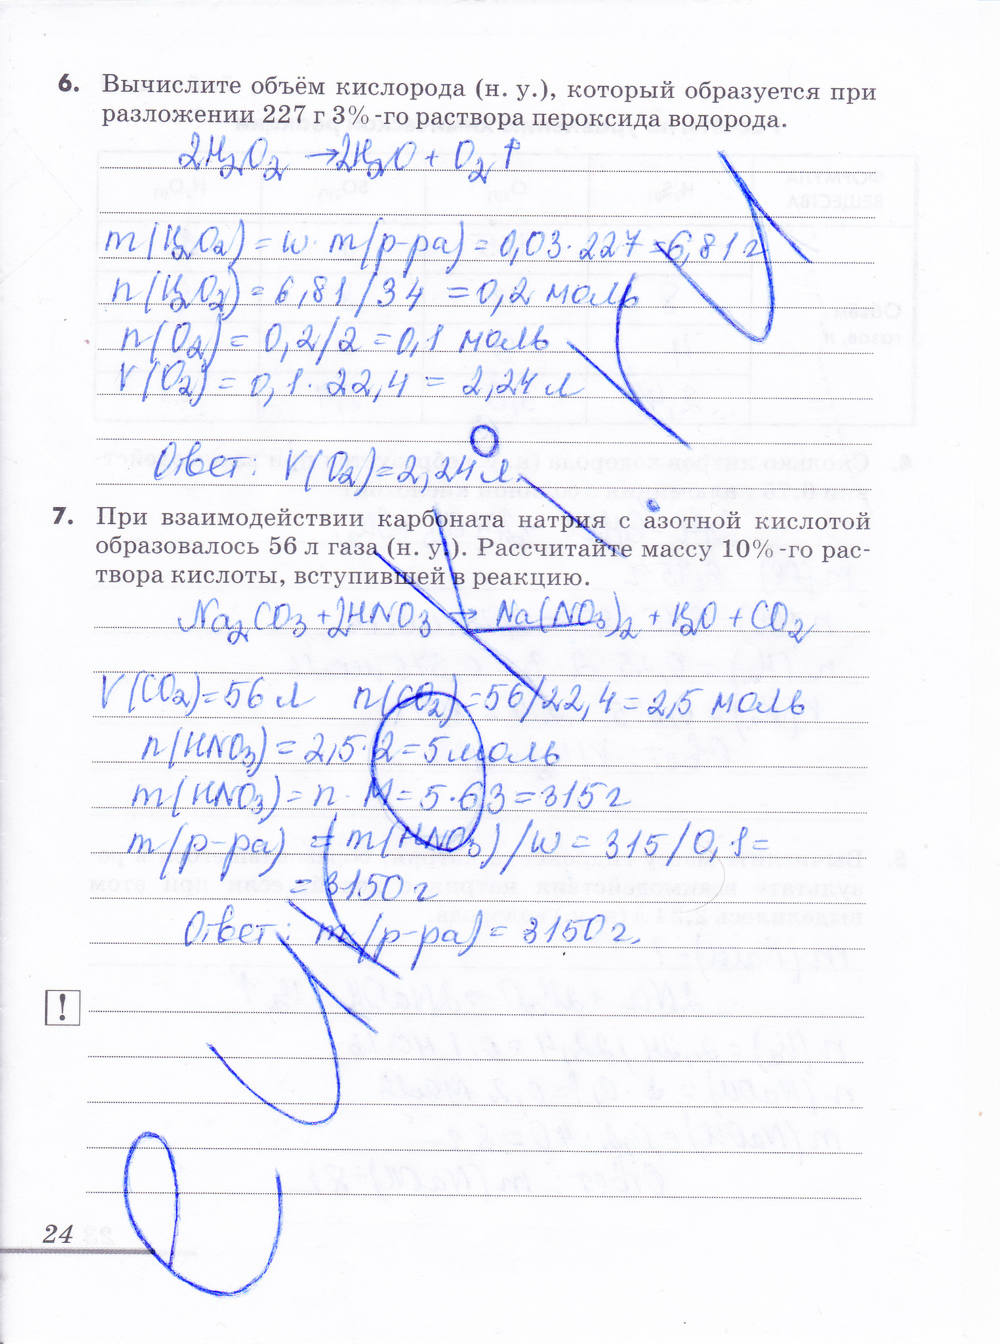 6. Вычислите объём кислорода (н. у.), который образуется при
разложении 227 г 3%-го раствора пероксида водорода.
2H₂O₂ → 2H₂O + O₂↑
m(H₂O₂) = w · m(р-ра) = 0,03 · 227 = 6,81 г
n(H₂O₂) = 6,81/34 = 0,2 моль
n(O₂) = 0,2/2 = 0,1 моль
V(O₂) = 0,1 · 22,4 = 2,24 л
Ответ: V(O₂) = 2,24 л.
7. При взаимодействии карбоната натрия с азотной кислотой
образовалось 56 л газа (н. у.). Рассчитайте массу 10%-го рас-
твора кислоты, вступившей в реакцию.
Na₂CO₃ + 2HNO₃ → Na(NO₃)₂ + H₂O + CO₂
V(CO₂) = 56 л n(CO₂) = 56/22,4 = 2,5 моль
n(HNO₃) = 2,5 · 2 = 5 моль
m(HNO₃) = n · M = 5 · 63 = 315 г
m(р-ра) = m(HNO₃)/w = 315/0,1 =
= 3150 г
Ответ: m(р-ра) = 3150 г.
!
24